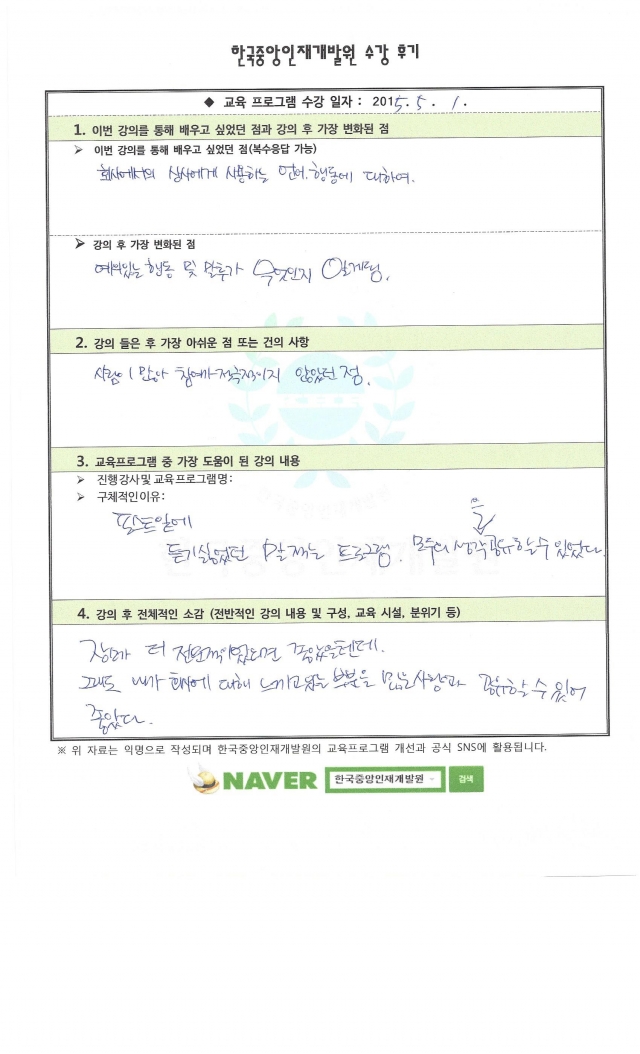 한국중앙인재개발원 수강 후기
◆ 교육 프로그램 수강 일자 : 2015. 5. 1.
1. 이번 강의를 통해 배우고 싶었던 점과 강의 후 가장 변화된 점
➤ 이번 강의를 통해 배우고 싶었던 점(복수응답 가능)
회사에서의 상사에게 사용하는 언어. 행동에 대하여.
➤ 강의 후 가장 변화된 점
예의있는 행동 및 말투가 무엇인지 알게됨.
2. 강의 들은 후 가장 아쉬운 점 또는 건의 사항
사람이 많아 참여가 적극적이지 않았던 점.
3. 교육프로그램 중 가장 도움이 된 강의 내용
➤ 진행강사 및 교육프로그램명:
➤ 구체적인 이유:
포스트잇에
듣기싫었던 말 적는 프로그램. 모두의 생각 공유할 수 있었다.
4. 강의 후 전체적인 소감 (전반적인 강의 내용 및 구성, 교육 시설, 분위기 등)
더 좋았을텐데.
그래도 내가 회사에 대해 느끼고있는 부분을 많은사람과 공유할 수 있어
좋았다.
※ 위 자료는 익명으로 작성되며 한국중앙인재개발원의 교육프로그램 개선과 공식 SNS에 활용됩니다.
NAVER 한국중앙인재개발원 검색
한국중앙인재개발원